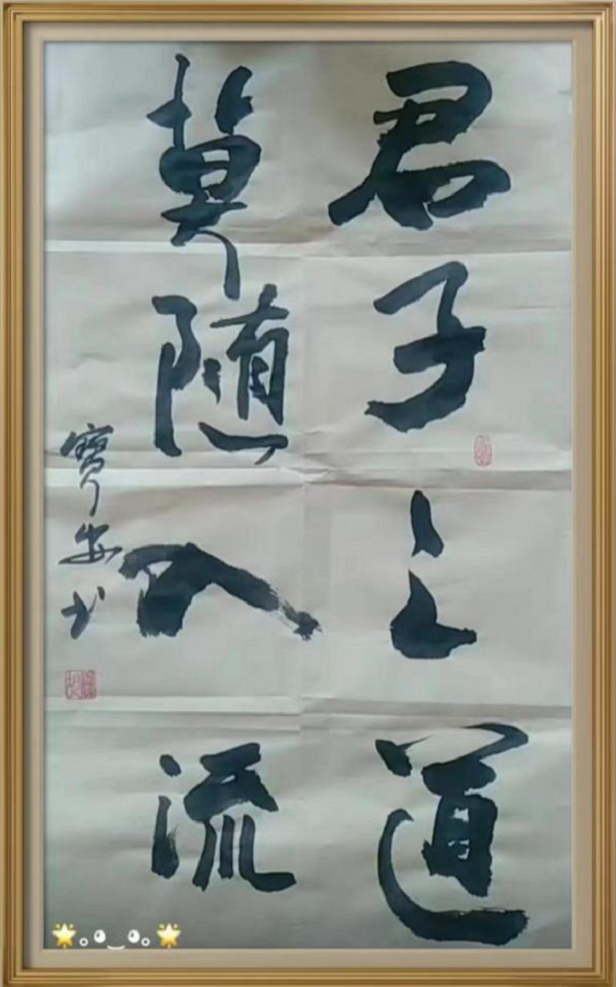 君子之道
莫随入流
寶安书
🌟｡◕‿◕｡🌟